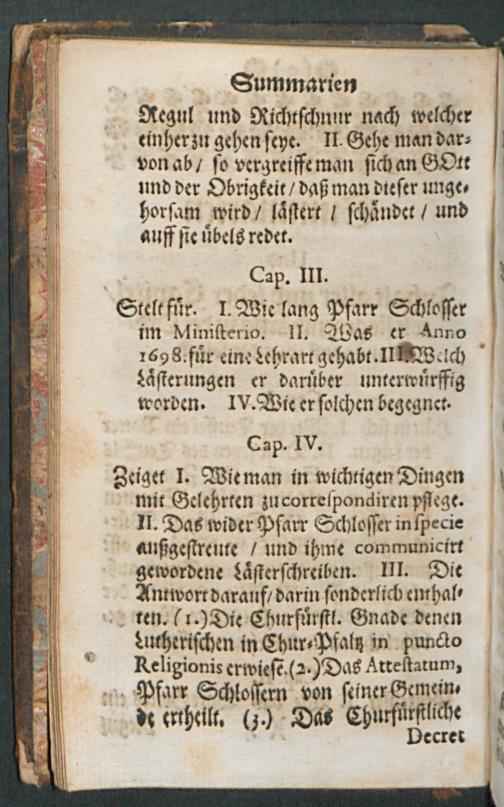 Summarien
Regul und Richtschnur nach welcher
einher zu gehen seye. II. Gehe man dar-
von ab / so vergreiffe man sich an GOtt
und der Obrigkeit / daß man dieser unge-
horsam wird / lästert / schändet / und
auff sie übels redet.
Cap. III.
Stelt für. I. Wie lang Pfarr Schlosser
im Ministerio. II. Was er Anno
1698. für eine Lehrart gehabt. III. Welch
Lästerungen er darüber unterwürffig
worden. IV. Wie er solchen begegnet.
Cap. IV.
Zeiget I. Wie man in wichtigen Dingen
mit Gelehrten zu correspondiren pflege.
II. Das wider Pfarr Schlosser in specie
außgestreute / und ihme communicirt
gewordene Lästerschreiben. III. Die
Antwort darauf / darin sonderlich enthal-
ten. (1.) Die Churfürstl. Gnade denen
Lutherischen in Chur-Pfaltz in puncto
Religionis erwiese. (2.) Das Attestatum,
Pfarr Schlossern von seiner Gemein-
de ertheilt. (3.) Das Churfürstliche
Decret